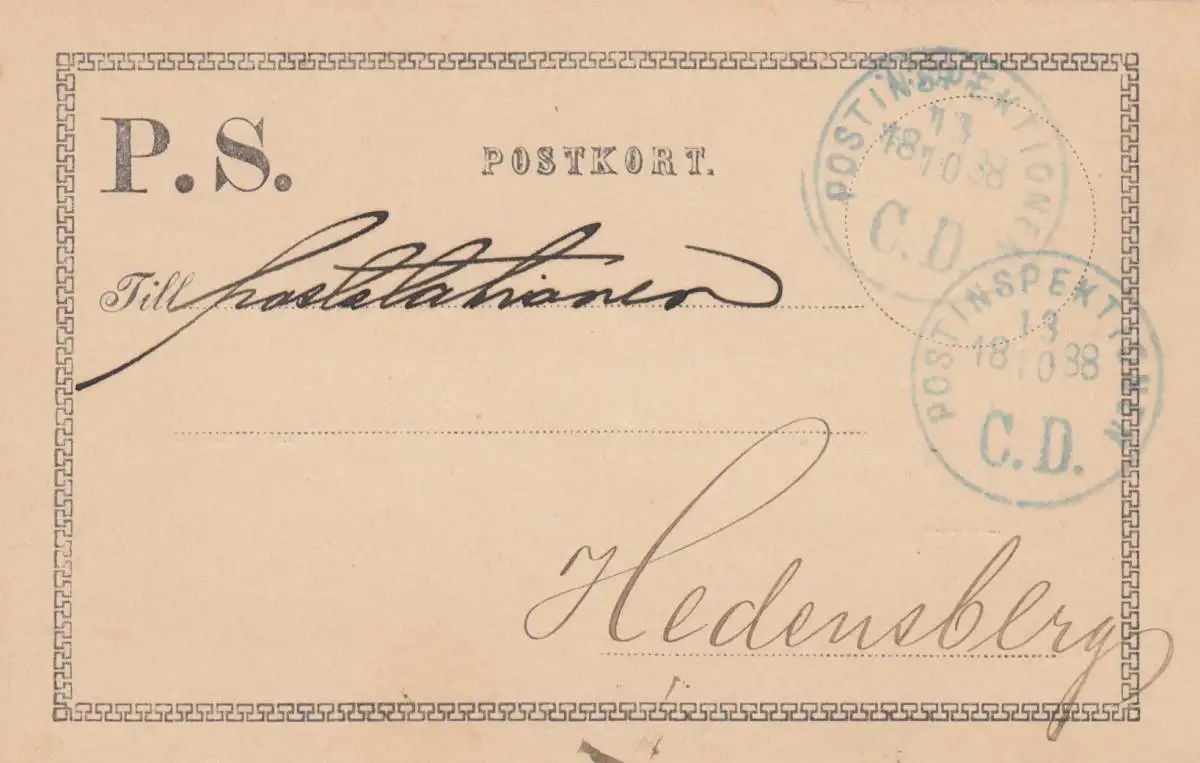 P.S.
POSTKORT.
POSTINSPEKTIONEN
13
18 10 88
C.D.
Till poststationen
POSTINSPEKTIONEN
13
18 10 88
C.D.
Hedensberg